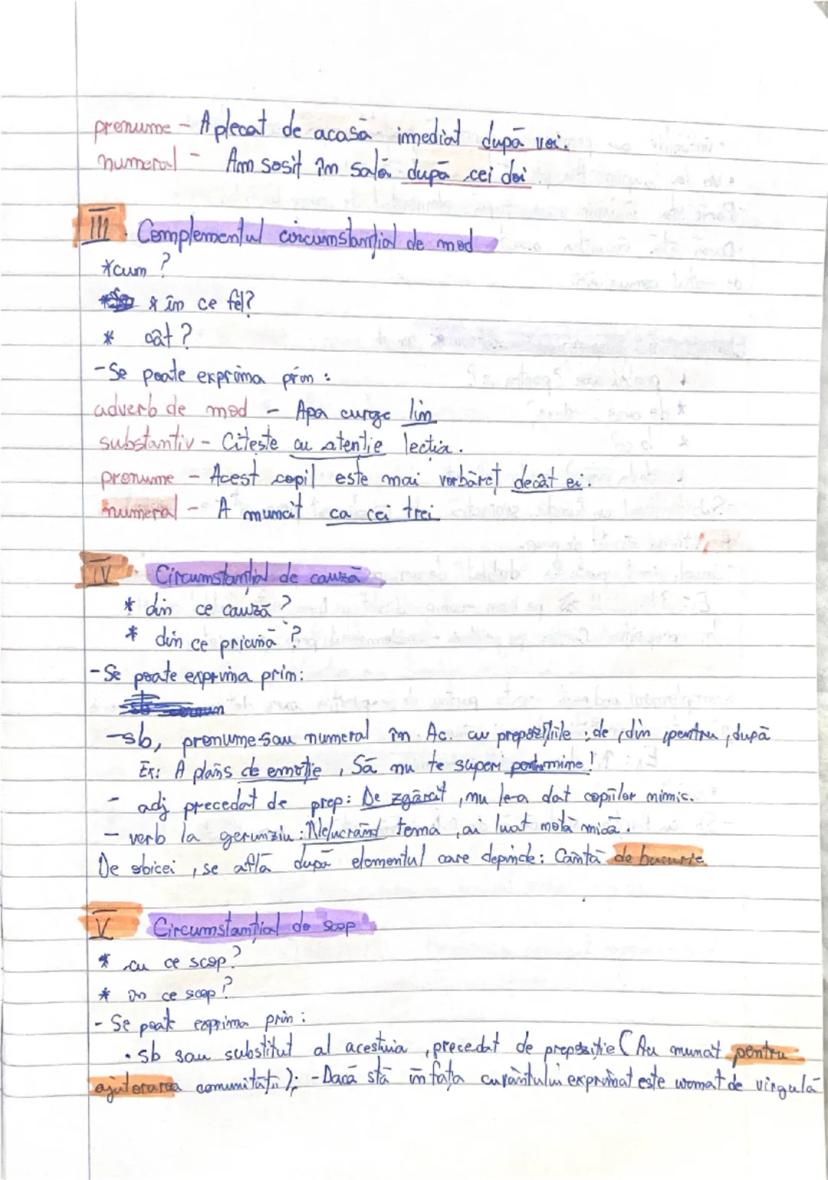 pronume - A plecat de acasă imediat după voi.
numeral - Am sosit în sală după cei doi
III. Complementul circumstanțial de mod
*cum ?
* în ce fel?
* cât ?
- Se poate exprima prin :
adverb de mod - Apa curge lin
substantiv - Citește cu atenție lecția.
pronume - Acest copil este mai vorbăreț decât ei.
numeral - A muncit ca cei trei
IV Circumstanțial de cauză
* din ce cauză ?
* din ce pricină ?
- Se poate exprima prim:
-sb, pronume sau numeral în Ac. cu prepozițiile : de, din, pentru, după
Ex: A plâns de emoție, Să nu te superi pentru mine!
- adj precedat de prep: De zgârcit, nu le-a dat copiilor nimic.
- verb la gerunziu: Nelucrând tema, ai luat notă mică.
De obicei, se află după elementul care depinde: Cântă de bucurie
V Circumstanțial de scop
* cu ce scop?
* în ce scop?
- Se poate exprima prin :
• sb sau substitut al acestuia, precedat de prepoziție (Au muncit pentru
ajutorarea comunității); - Dacă stă în fața cuvântului exprimat este urmat de virgulă